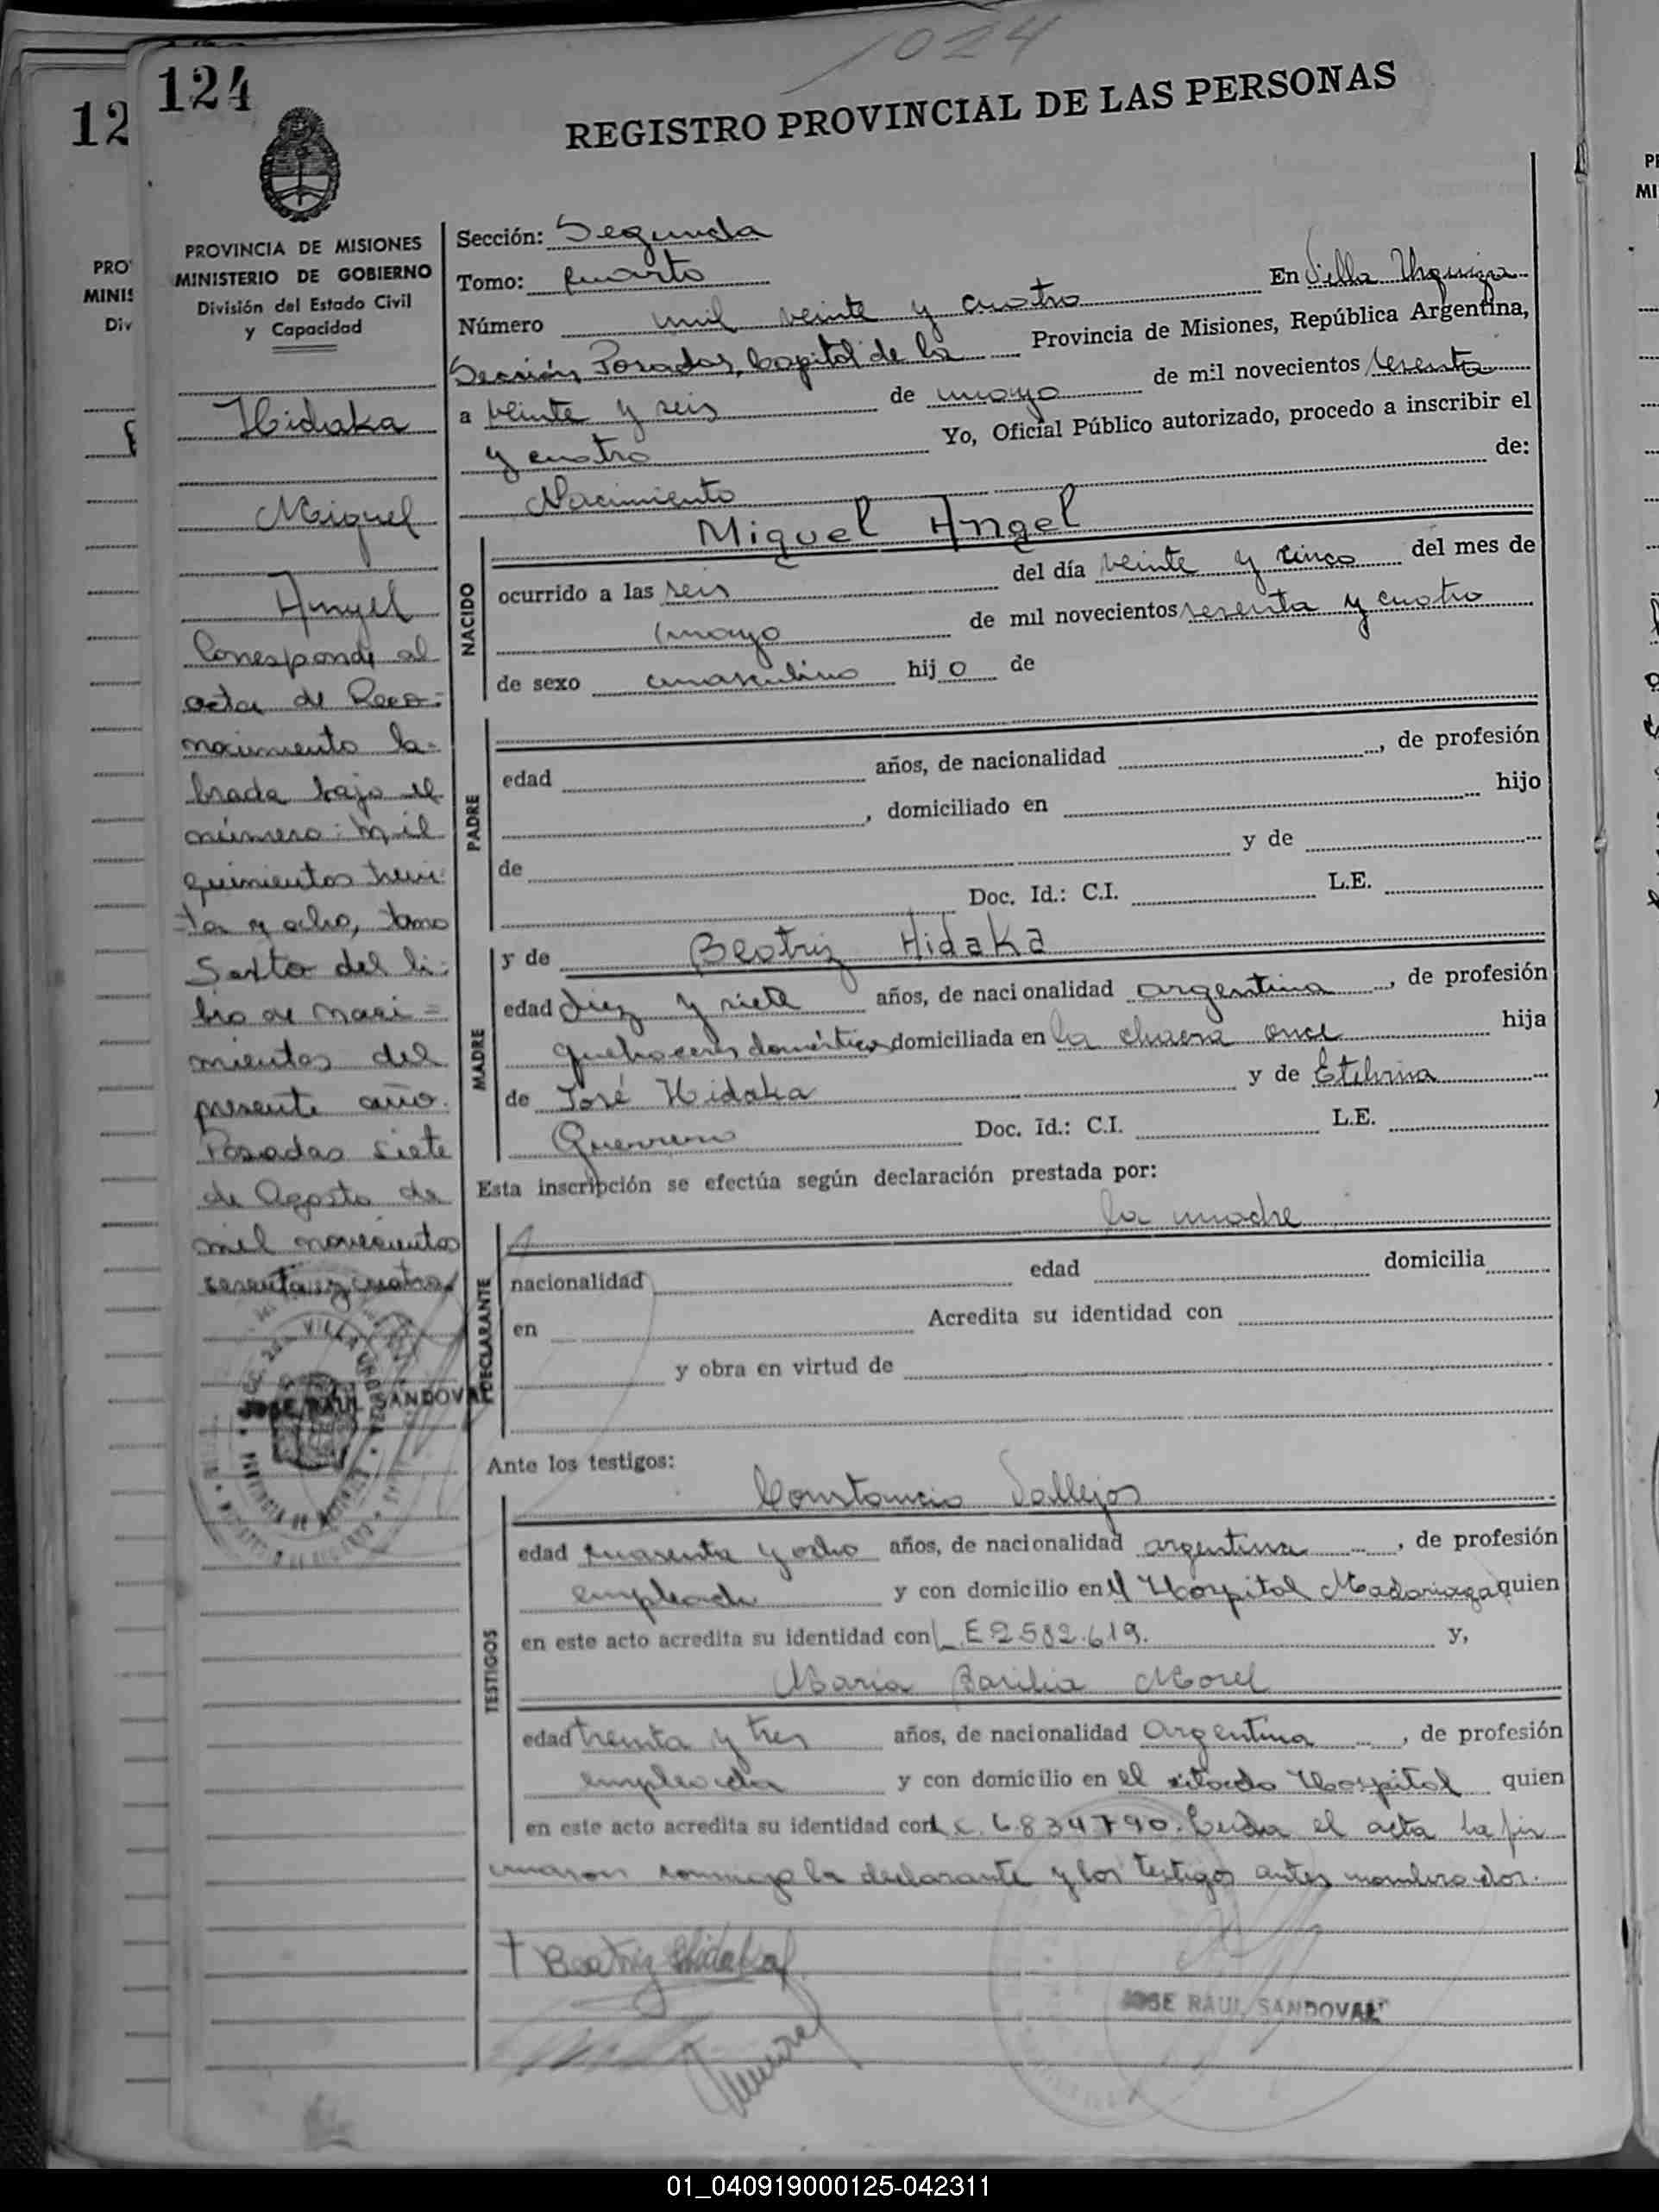 1024
124
12
REGISTRO PROVINCIAL DE LAS PERSONAS
PROVINCIA DE MISIONES
MINISTERIO DE GOBIERNO
División del Estado Civil
y Capacidad
Hidaka
Miguel
Angel
Corresponde al
acta de Reco-
nocimiento la-
brada bajo el
número: Mil
quinientos trein-
ta y ocho, tomo
Sexto del li-
bro de naci-
mientos del
presente año.
Posadas siete
de Agosto de
mil novecientos
sesenta y cuatro
JOSE RAUL SANDOVAL
Sección: Segunda
Tomo: Cuarto
Número mil veinte y cuatro En Villa Urquiza
Sección Posadas, Capital de la Provincia de Misiones, República Argentina,
a veinte y seis de mayo de mil novecientos sesenta
y cuatro Yo, Oficial Público autorizado, procedo a inscribir el
Nacimiento de:
Miguel Angel
NACIDO
ocurrido a las seis del día veinte y cinco del mes de
mayo de mil novecientos sesenta y cuatro
de sexo masculino hijo de
PADRE
edad años, de nacionalidad , de profesión
, domiciliado en hijo
de y de
Doc. Id.: C.I. L.E.
MADRE
y de Beatriz Hidaka
edad diez y siete años, de nacionalidad argentina , de profesión
quehaceres domésticos domiciliada en la chacra once hija
de José Hidaka y de Etelvina
Guerrero Doc. Id.: C.I. L.E.
Esta inscripción se efectúa según declaración prestada por:
la madre
DECLARANTE
nacionalidad edad domicilia
en Acredita su identidad con
y obra en virtud de
Ante los testigos:
TESTIGOS
Constancio Vallejos
edad cuarenta y ocho años, de nacionalidad argentina , de profesión
empleado y con domicilio en el Hospital Madariaga quien
en este acto acredita su identidad con L.E 2582.619. y,
María Basilia Morel
edad treinta y tres años, de nacionalidad Argentina , de profesión
empleada y con domicilio en el citado Hospital quien
en este acto acredita su identidad con L.C. 6.834790. Leída el acta la fir
maron conmigo la declarante y los testigos antes nombrados.
Beatriz Hidaka
JOSE RAUL SANDOVAL
01_040919000125-042311